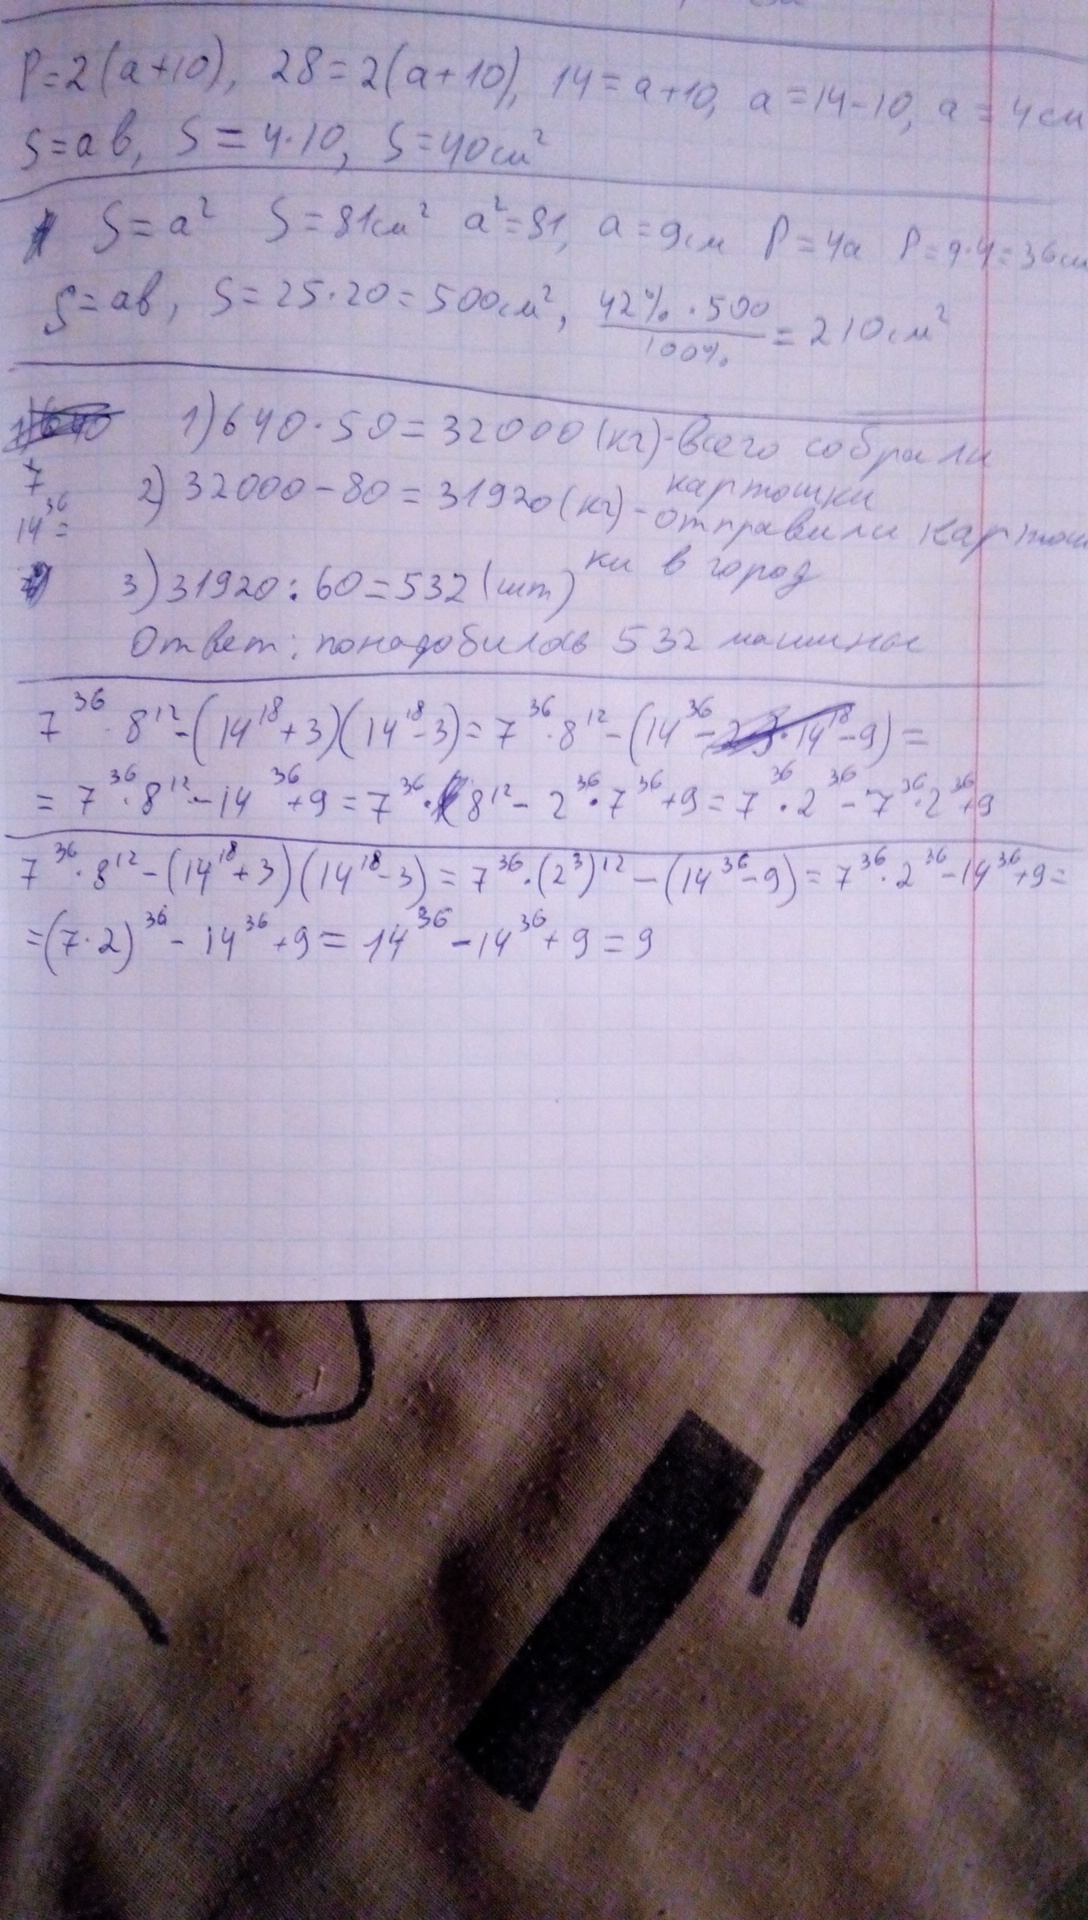 P=2(a+10), 28=2(a+10), 14=a+10, a=14-10, a=4см
S=ab, S=4·10, S=40см²
S=a² S=81см² a²=81, a=9см P=4a P=9·4=36см
S=ab, S=25·20=500см², 42%·500/100%=210см²
1)640·50=32000(кг)-всего собрали
картошки
7
2) 32000-80=31920(кг)-отправили картош
ки в город
14³⁶=
3)31920:60=532(шт)
Ответ: понадобилось 532 машины
7³⁶·8¹²-(14¹⁸+3)(14¹⁸-3)=7³⁶·8¹²-(14³⁶-9)=
=7³⁶·8¹²-14³⁶+9=7³⁶·8¹²-2³⁶·7³⁶+9=7³⁶·2³⁶-7³⁶·2³⁶+9
7³⁶·8¹²-(14¹⁸+3)(14¹⁸-3)=7³⁶·(2³)¹²-(14³⁶-9)=7³⁶·2³⁶-14³⁶+9=
=(7·2)³⁶-14³⁶+9=14³⁶-14³⁶+9=9